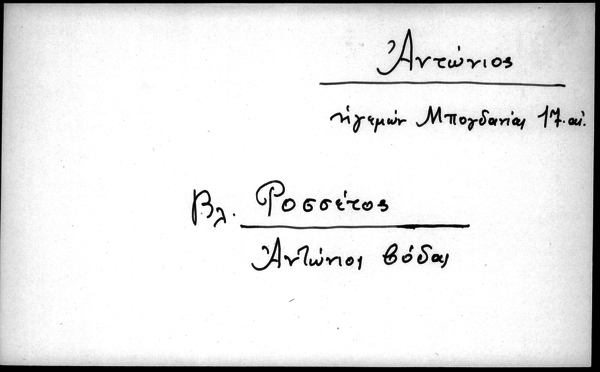 Ἀντώνιος
ἡγεμὼν Μπογδανίας 17. αἰ.
Βλ. Ροσσέτος
Ἀντώνιος βόδας